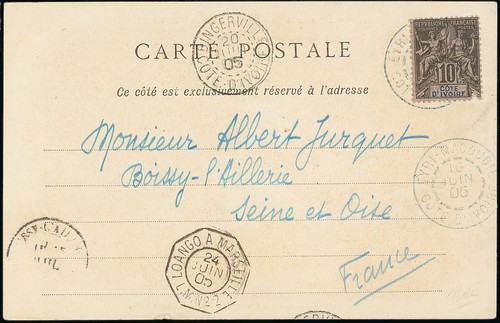 BINGERVILLE
20
JUIN
05
CÔTE-D'IVOIRE
CARTE POSTALE
RÉPUBLIQUE FRANÇAISE
10
CÔTE
D'IVOIRE
Ce côté est exclusivement réservé à l'adresse
Monsieur Albert Jurquet
Boissy-l'Aillerie
Seine et Oise
France
16
JUIN
05
LOANGO A MARSEILLE
24
JUIN
05
L.M. Nº2